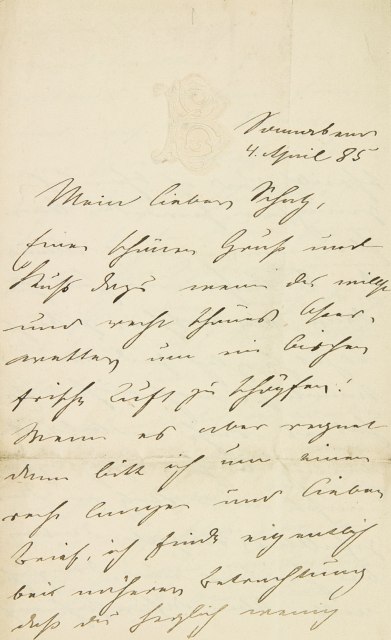 Sonnabend
4. April 85
Mein lieber Schatz,
Einen schönen Gruß und
Kuß dazu wenn du willst
und recht schönes Oster-
wetter um ein bischen
frische Luft zu schöpfen!
Wenn es aber regnet
dann bitt ich um einen
recht langen und lieben
Brief, ich finde eigentlich
bei näherer Betrachtung
daß du herzlich wenig